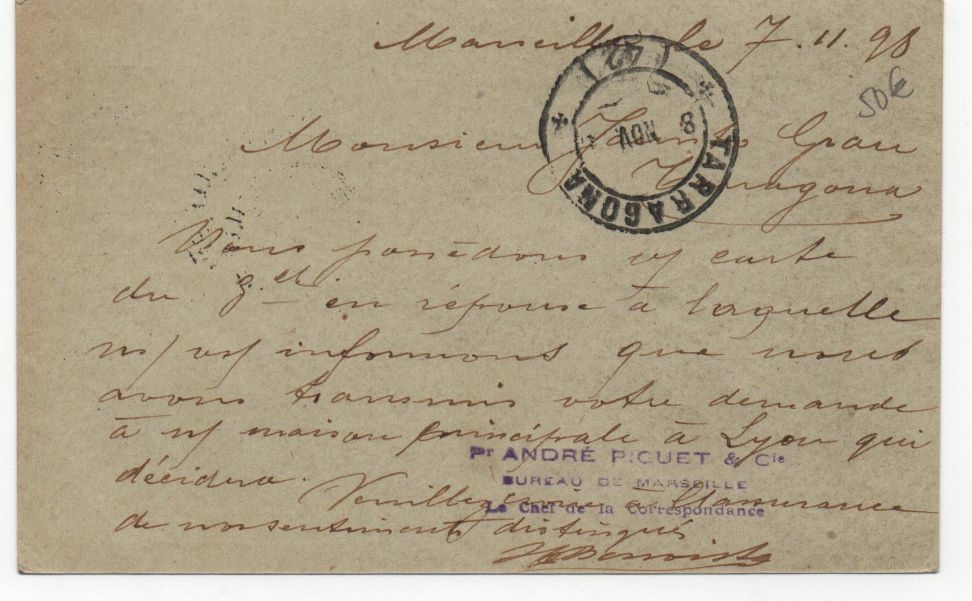 Marseille le 7.11.98
50€
42
TARRAGONA
8 NOV
Monsieur Grau
Tarragona
Nous possédons v/ carte
du 3 ct en réponse à laquelle
ns/ vs/ informons que nous
avons transmis votre demande
à n/ maison principale à Lyon qui
décidera.
Pr ANDRÉ PIGUET & Cie
BUREAU DE MARSEILLE
Le Chef de la Correspondance
Veuillez croire à l'assurance
de nos sentiments distingués